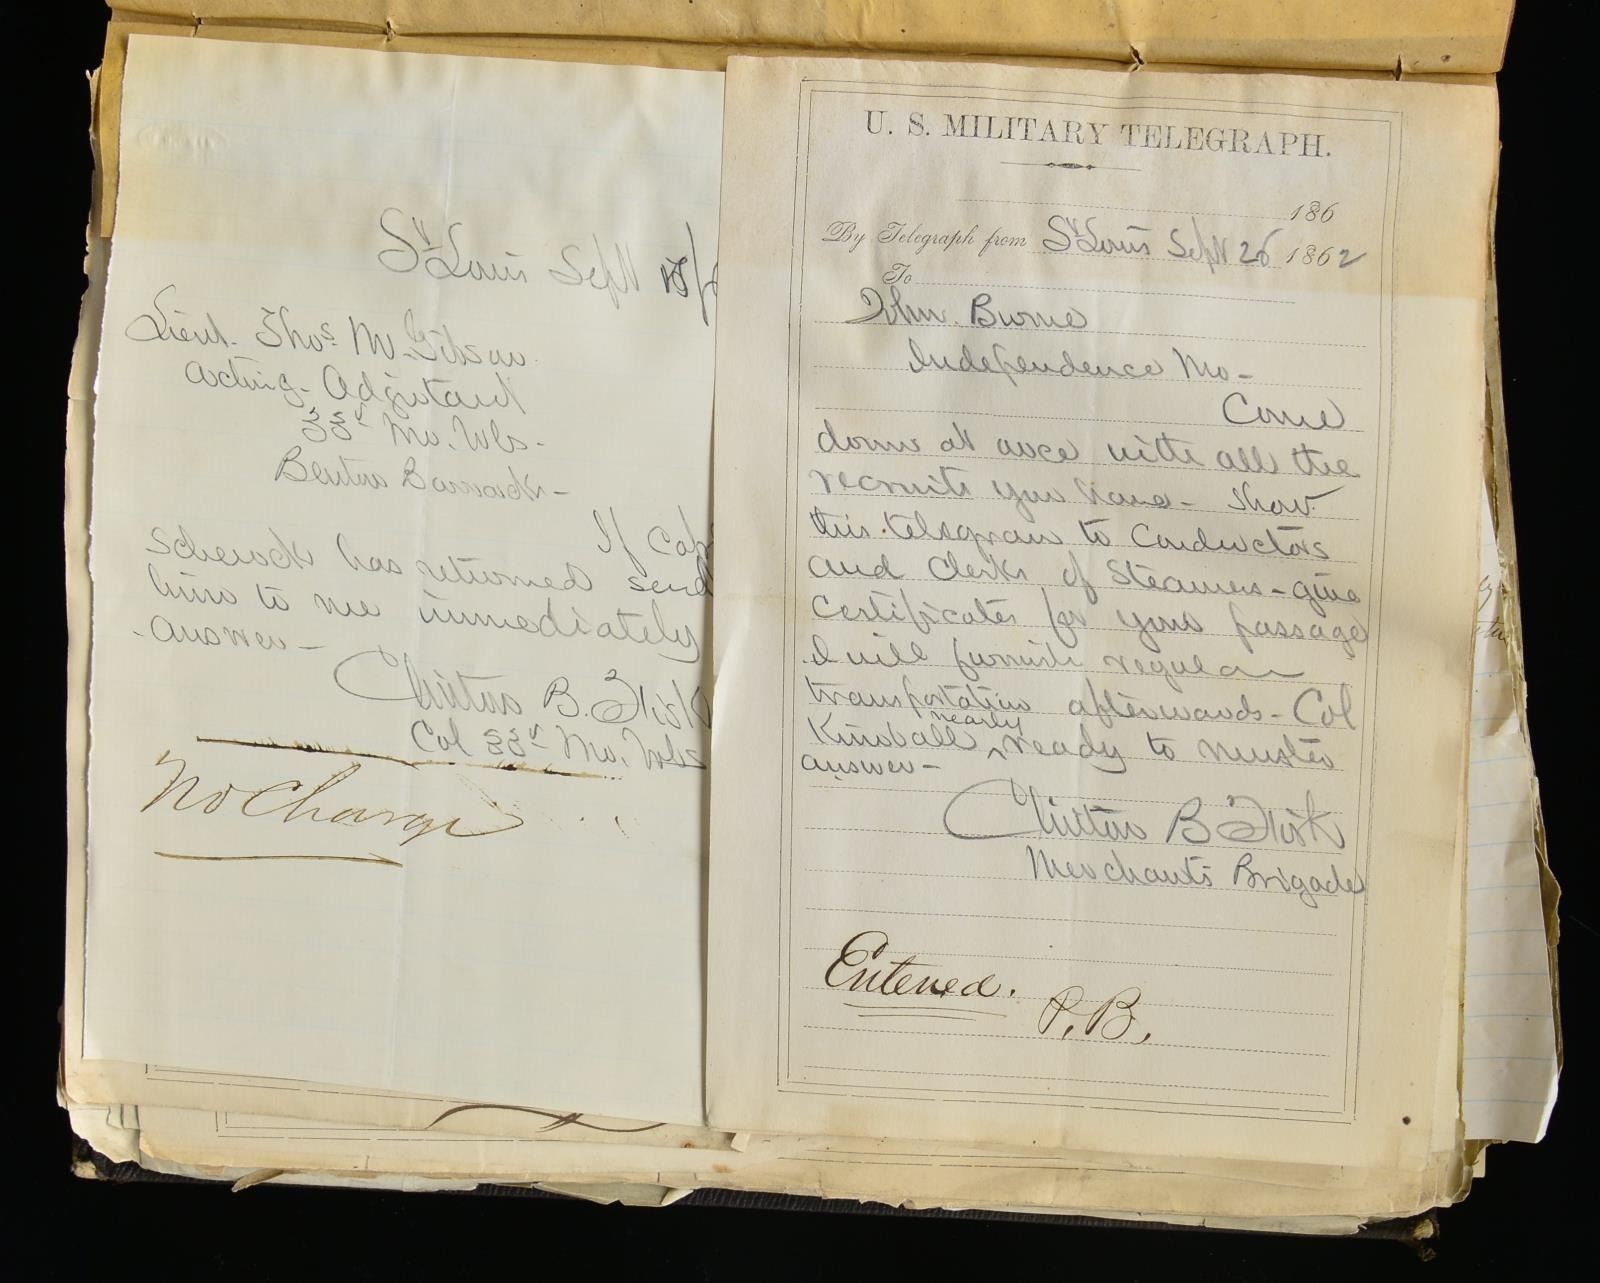 St Louis Sept
Lieut. Thos. M. Gibson
Acting Adjutant
33d Mo. Vols.
Benton Barracks -
If Cap
Scherock has returned send
him to me immediately
- answer -
Clinton B. Fisk
Col 33d Mo. Vols
No Charge
U. S. MILITARY TELEGRAPH.
186
By Telegraph from St Louis Sept 26 1862
To
John Burne
Independence Mo -
Come
down at once with all the
recruits you have - Show
this telegram to Conductors
and Clerks of Steamers - give
certificates for your passage
I will furnish regular
transportation afterwards - Col
Kimball nearly ready to muster
answer -
Clinton B Fisk
Merchants Brigade
Entered. P. B.